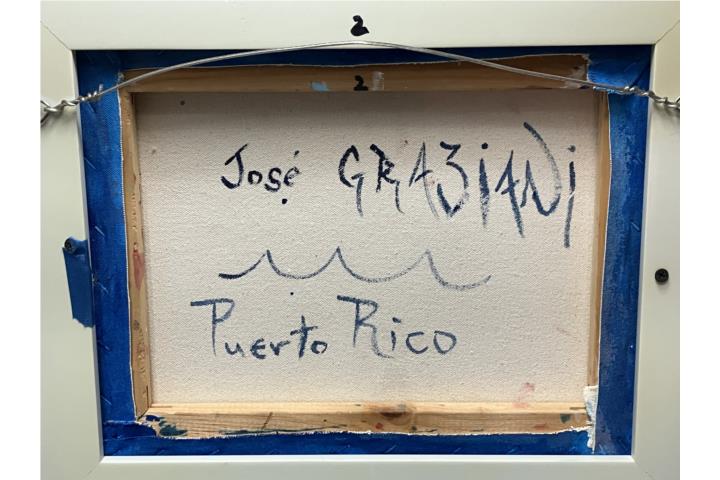 2
2
José GRAZiANi
Puerto Rico